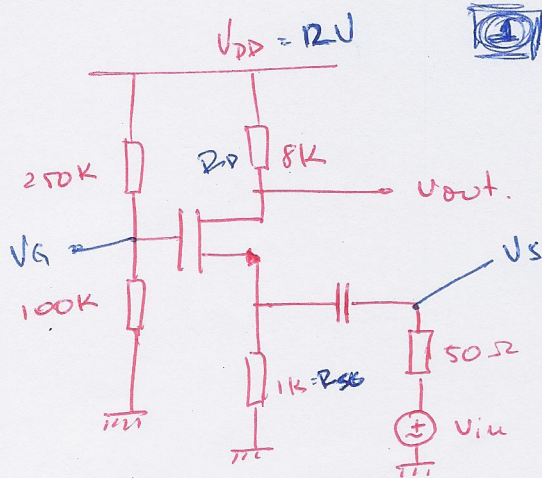 1
VDD = 12V
250K
RD 8K
Vout.
VG
VS
100K
1K=RSG
50Ω
Vin